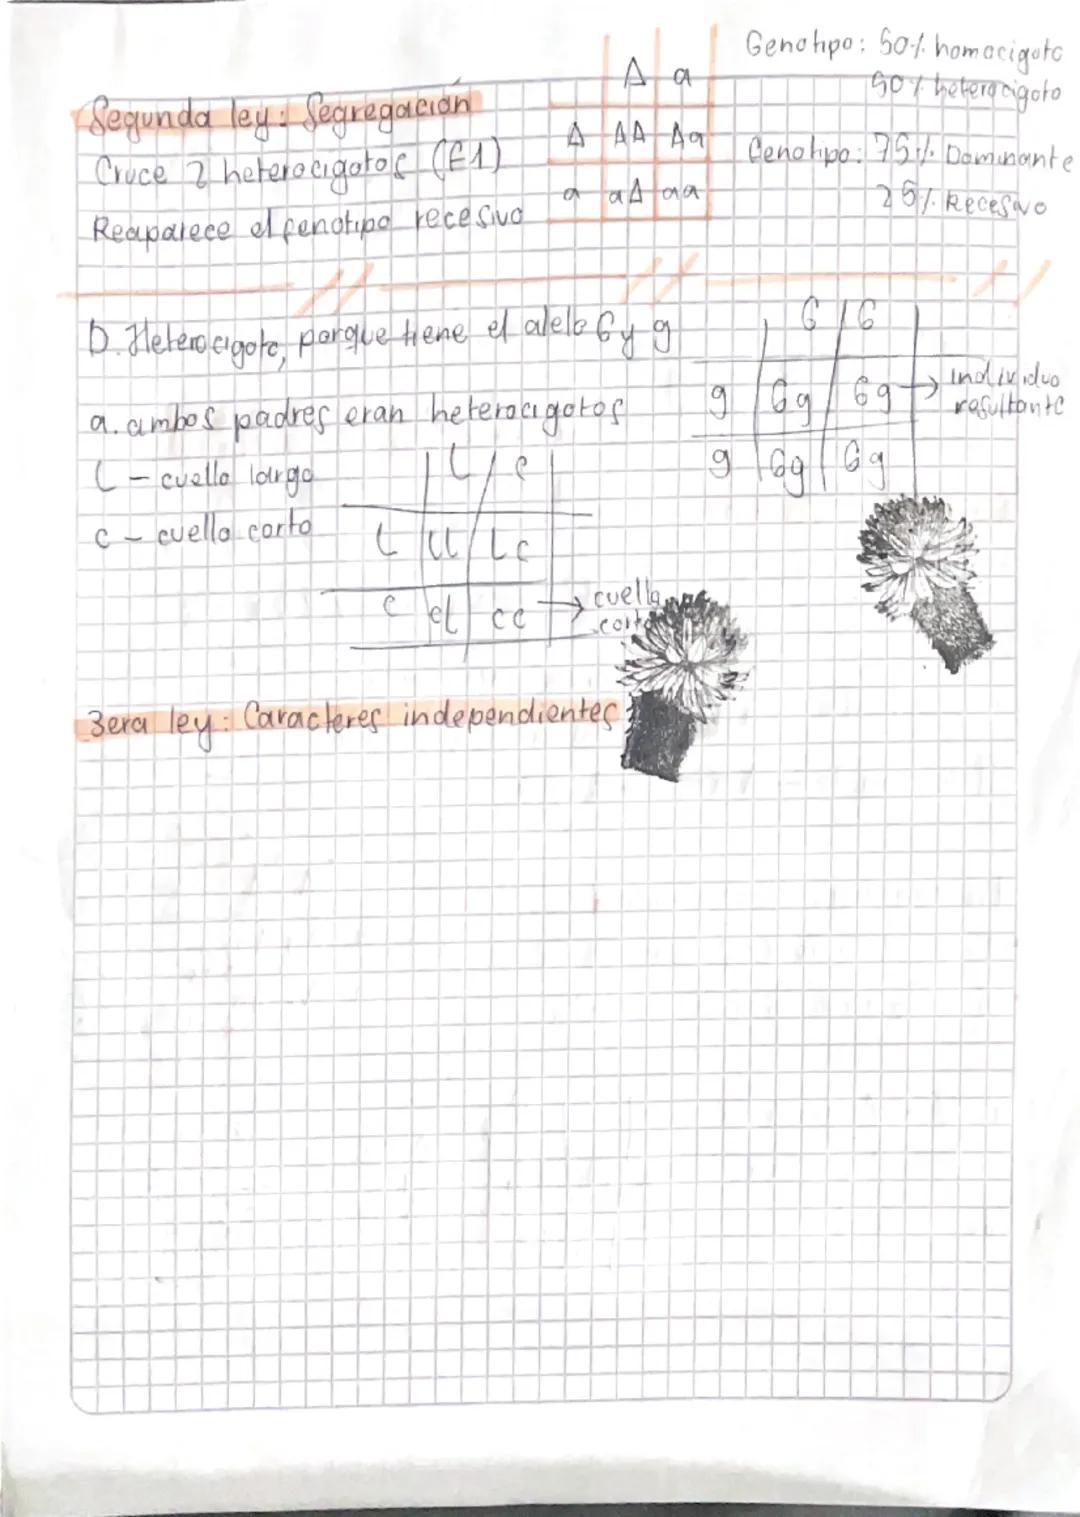 Genotipo: 50% homocigoto
50% heterocigoto
A a
Segunda ley: Segregación
A AA Aa
Cruce 2 heterocigotos (F1)
Fenotipo: 75% Dominante
a aA aa
25% Recesivo
Reaparece el fenotipo recesivo
D. Heterocigoto, porque tiene el alelo G y g
G G
g Gg Gg → individuo resultante
g Gg Gg
a. ambos padres eran heterocigotos
L - cuello largo
c - cuello corto
L c
L LL Lc
c cL cc → cuello corto
3era ley: Caracteres independientes